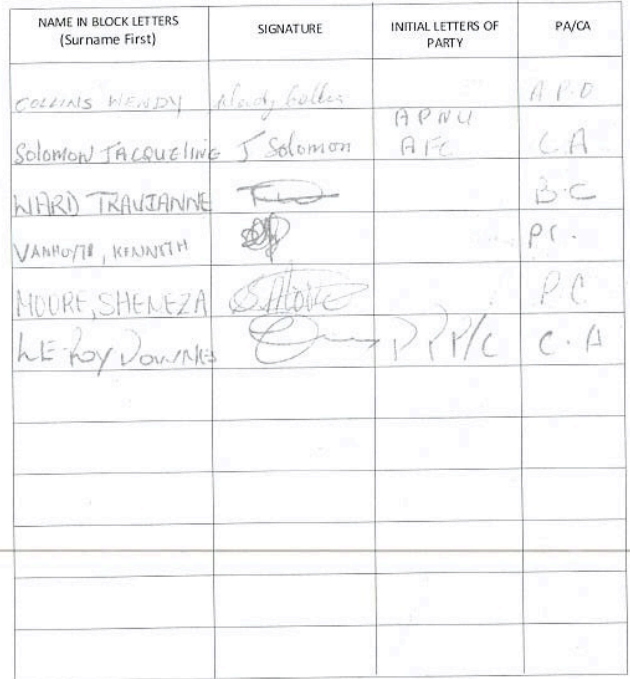 NAME IN BLOCK LETTERS
(Surname First)
SIGNATURE
INITIAL LETTERS OF
PARTY
PA/CA
COLLINS WENDY Wendy Collins A.P.O
Solomon JACQUELINE J Solomon APNU
AFC C.A
WARD TRAVIANNE B.C
KENNETH PC.
MOORE, SHENEZA S.Moore P.C
LE-ROY DOWNES PPP/C C.A